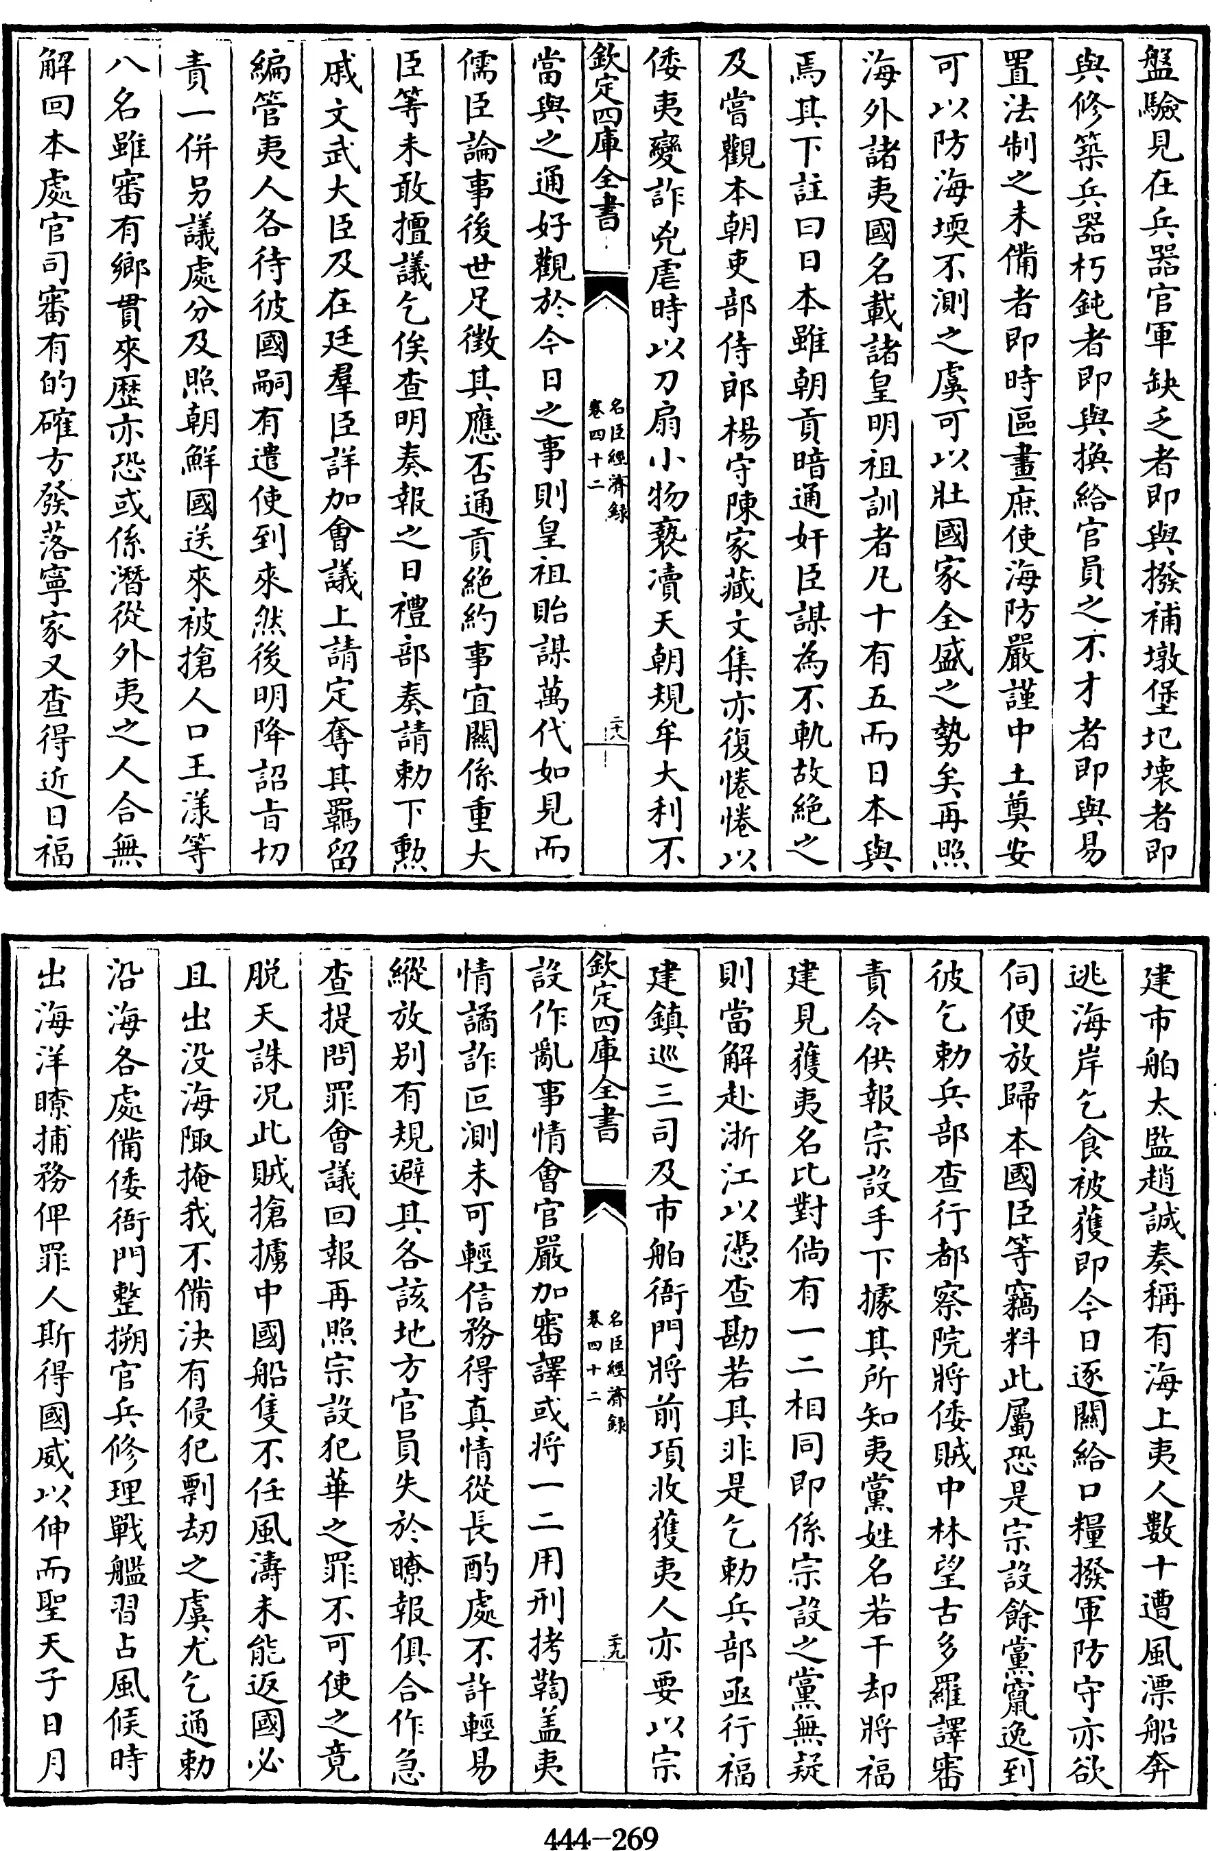 盤驗見在兵器官軍缺乏者即與撥補墩堡圮壊者即
與修築兵器朽鈍者即與換給官員之不才者即與易
置法制之未備者即時區畫庶使海防嚴謹中土奠安
可以防海堧不測之虞可以壯國家全盛之勢矣再照
海外諸夷國名載諸皇明祖訓者凡十有五而日本與
焉其下註曰日本雖朝貢暗通奸臣謀為不軌故絶之
及嘗觀本朝吏部侍郎楊守陳家藏文集亦復惓惓以
倭夷變詐兇虐時以刀扇小物褻凟天朝規牟大利不
欽定四庫全書
名臣經濟録
卷四十二
二十八
當與之通好觀於今日之事則皇祖貽謀萬代如見而
儒臣論事後世足徵其應否通貢絶約事宜關係重大
臣等未敢擅議乞俟查明奏報之日禮部奏請勅下勲
戚文武大臣及在廷羣臣詳加會議上請定奪其羈留
編管夷人各待彼國嗣有遣使到來然後明降詔㫖切
責一併另議處分及照朝鮮國送來被搶人口王漾等
八名雖審有鄉貫來歴亦恐或係潛從外夷之人合無
解回本處官司審有的確方發落寧家又查得近日福
建市舶太監趙誠奏稱有海上夷人數十遭風漂船奔
逃海岸乞食被獲即今日逐關給口糧撥軍防守亦欲
伺便放歸本國臣等竊料此屬恐是宗設餘黨竄逸到
彼乞勅兵部查行都察院將倭賊中林望古多羅譯審
責令供報宗設手下據其所知夷黨姓名若干却將福
建見獲夷名比對倘有一二相同即係宗設之黨無疑
則當解赴浙江以憑查勘若其非是乞勅兵部亟行福
建鎮巡三司及市舶衙門將前項收獲夷人亦要以宗
欽定四庫全書
名臣經濟録
卷四十二
二十九
設作亂事情會官嚴加審譯或將一二用刑拷鞫盖夷
情譎詐叵測未可輕信務得真情從長酌處不許輕易
縱放别有規避其各該地方官員失於瞭報俱合作急
查提問罪會議回報再照宗設犯華之罪不可使之竟
脱天誅况此賊搶擄中國船隻不任風濤未能返國必
且出没海陬掩我不備決有侵犯剽刼之虞尤乞通勅
沿海各處備倭衙門整搠官兵修理戰艦習占風候時
出海洋瞭捕務俾罪人斯得國威以伸而聖天子日月
444-269